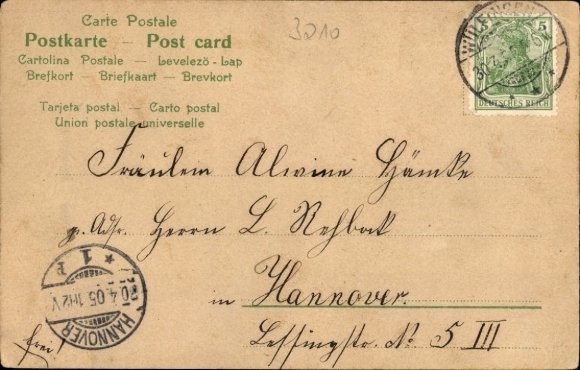 Carte Postale
Postkarte — Post card
Cartolina Postale — Levelező-Lap
Brefkort — Briefkaart — Brevkort
Tarjeta postal — Carto postal
Union postale universelle
3210
5
DEUTSCHES REICH
Fräulein Alwine Hämke
p. Adr. Herrn L. Rehbock
in Hannover.
Lessingstr. No. 5 III
frei!
HANNOVER
1 F
30.4.05